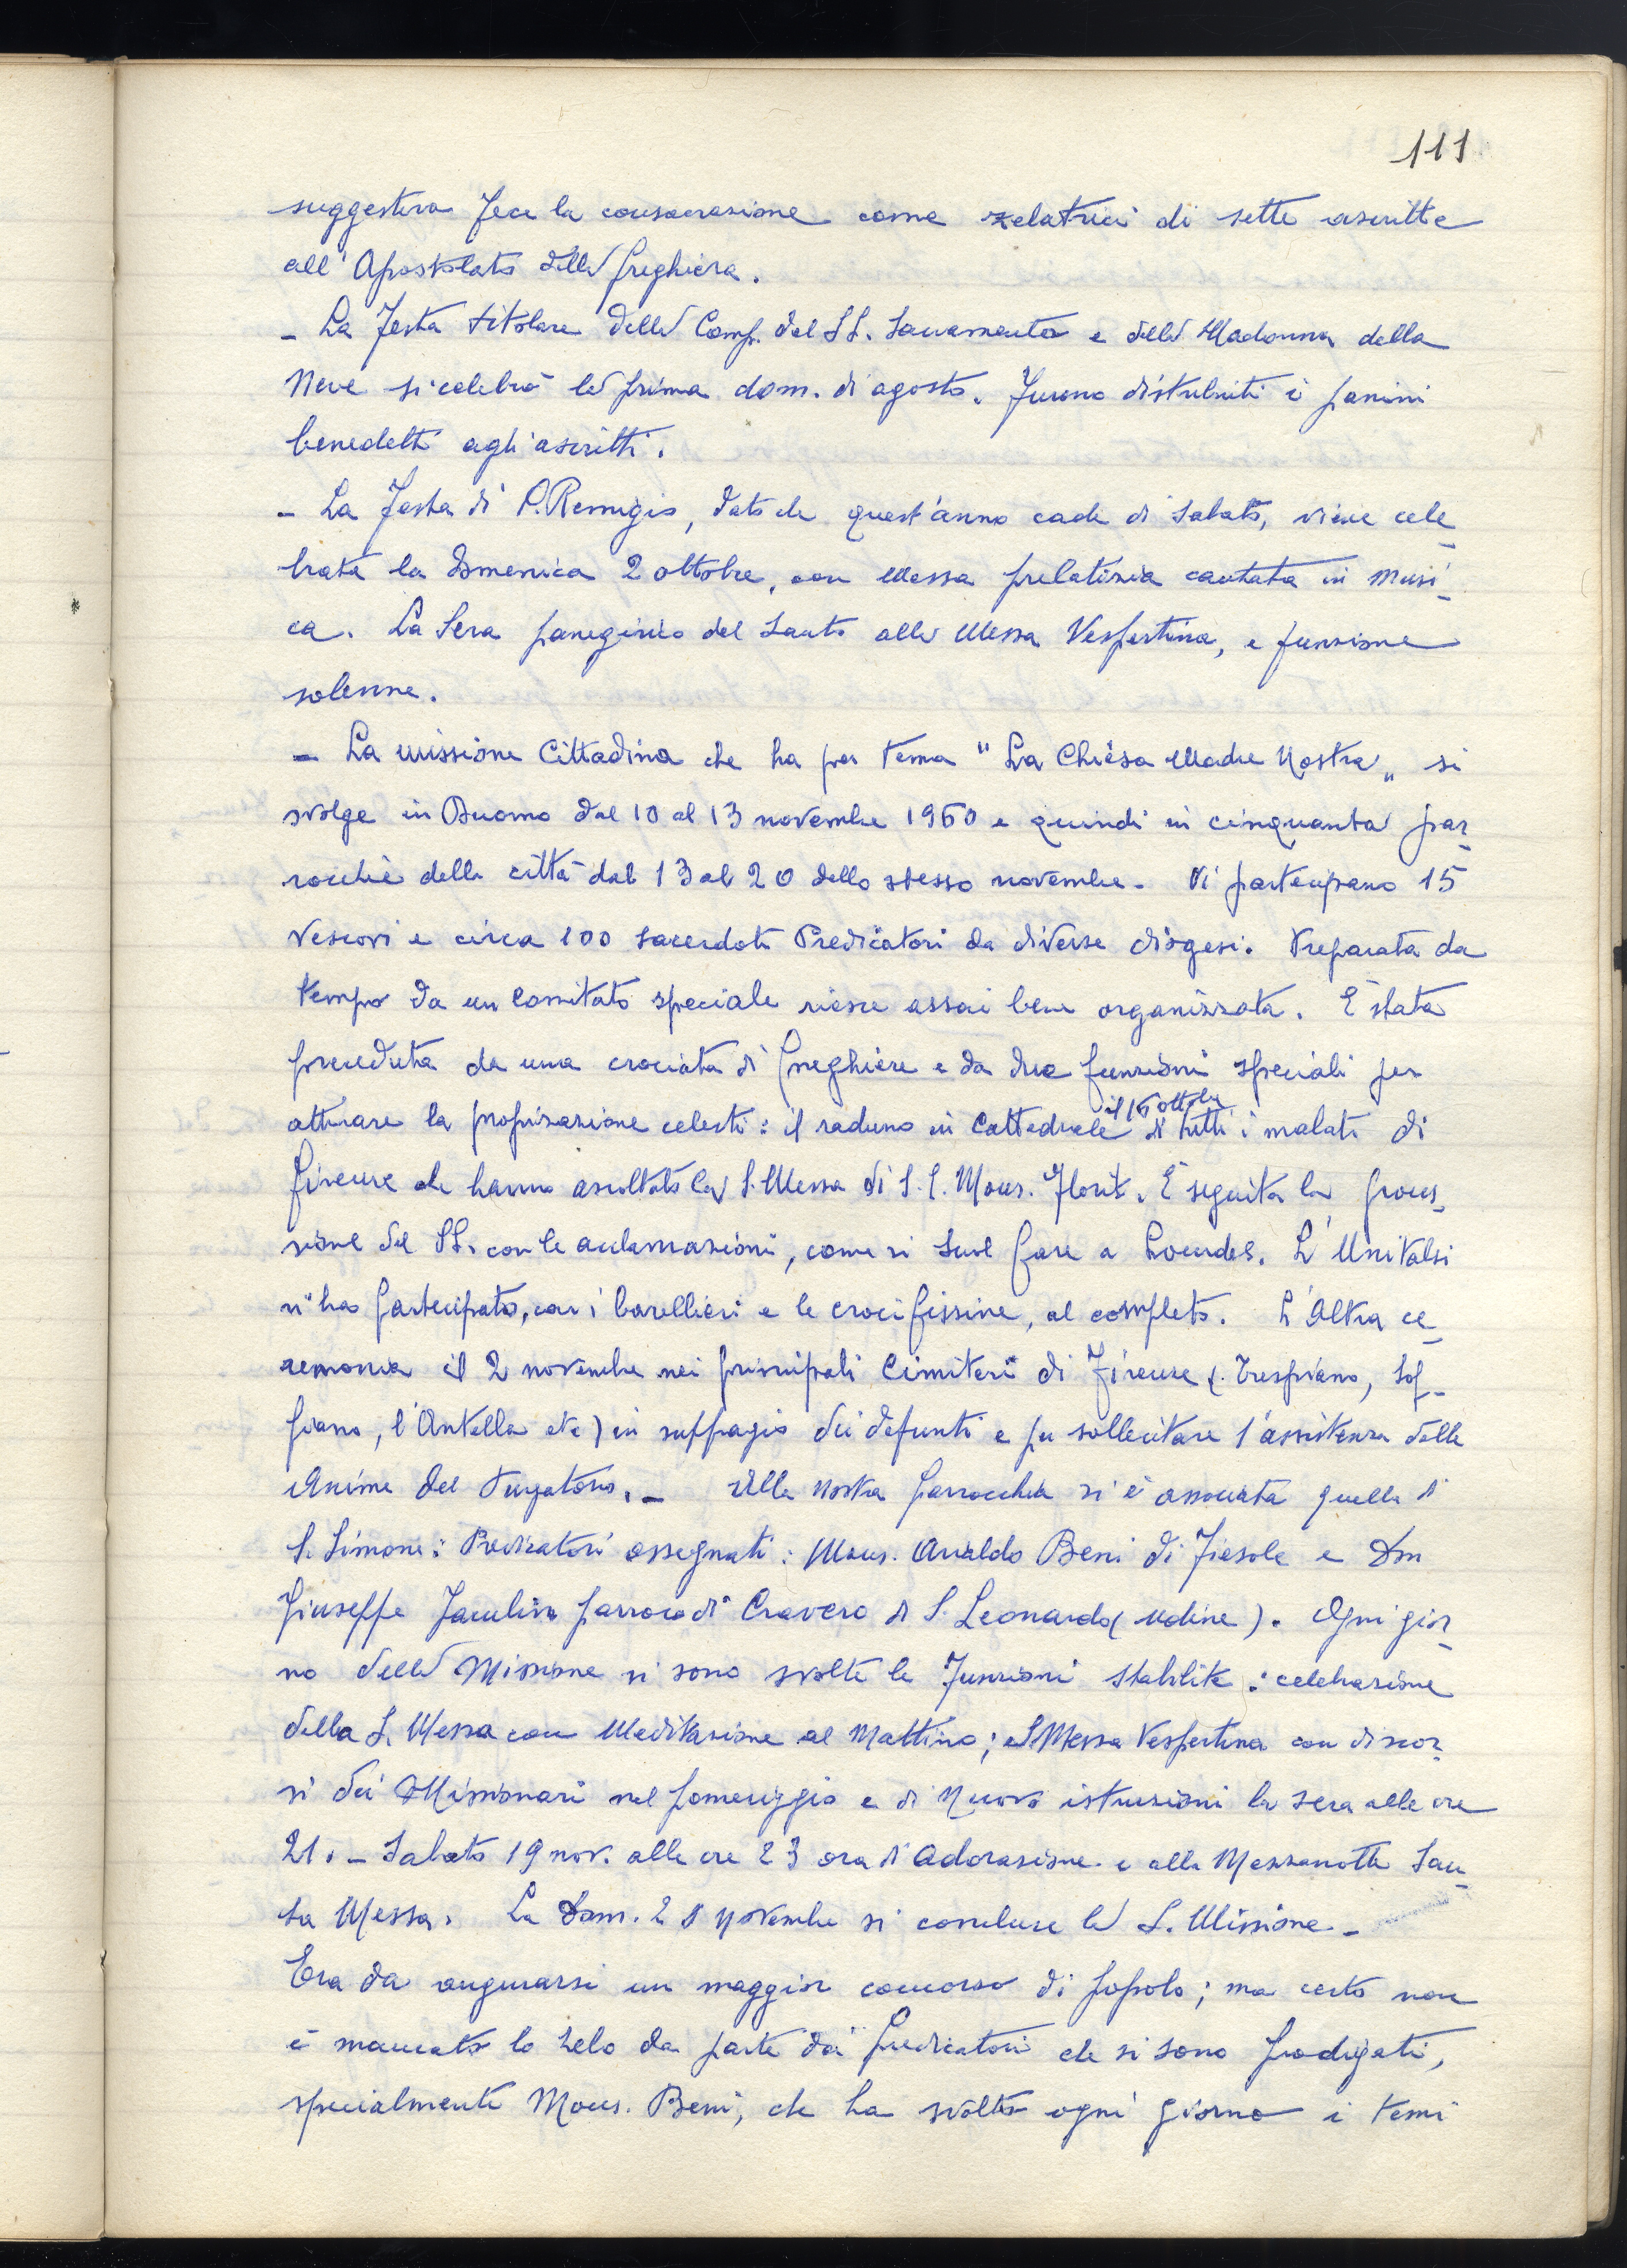 111
suggestiva fece la consacrazione come zelatrici di sette ascritte
all'Apostolato della preghiera.
- La Festa titolare della Comp. del SS. Sacramento e della Madonna della
Neve si celebrò la prima dom. di agosto. Furono distribuiti i panini
benedetti agli ascritti.
- La Festa di S. Remigio, dato che quest'anno cade di Sabato, viene cele_
brata la Domenica 2 ottobre, con Messa prelatizia cantata in musi_
ca. La Sera panegirico del Santo alla Messa Vespertina, e funzione
solenne.
- La missione Cittadina che ha per tema "La Chiesa Madre Nostra" si
svolge in Duomo dal 10 al 13 novembre 1960 e quindi in cinquanta par_
rocchie della città dal 13 al 20 dello stesso novembre. Vi partecipano 15
Vescovi e circa 100 Sacerdoti Predicatori da diverse diogesi. Preparata da
tempo da un Comitato speciale riesce assai bene organizzata. È stata
preceduta da una crociata di preghiere e da due funzioni speciali per
il 16 ottobre
attirare la propiziazione celeste: il raduno in Cattedrale di tutti i malati di
Firenze che hanno ascoltato la S. Messa di S. E. Mons. Florit. È seguita la proces_
sione del SS. con le acclamazioni, come si suol fare a Lourdes. L'Unitalsi
vi ha partecipato, con i barellieri e le crocifissine, al completo. L'Altra ce_
remonia il 2 novembre nei principali Cimiteri di Firenze (Trespiano, Sof_
fiano, l'Antella etc) in suffragio dei defunti e per sollecitare l'assistenza delle
Anime del Purgatorio. - Alla nostra parrocchia si è associata quella di
S. Simone: Predicatori assegnati: Mons. Araldo Beni di Fiesole e Don
Giuseppe Jaculin parroco di Cravero di S. Leonardo (Udine). Ogni gior_
no della Missione si sono svolte le Funzioni stabilite: celebrazione
della S. Messa con Meditazione al Mattino; S. Messa Vespertina con discor_
si dei Missionari nel pomeriggio e di nuovo istruzioni la sera alle ore
21. - Sabato 19 nov. alle ore 23 ora d'Adorazione e alla Mezzanotte San_
ta Messa. La Dom. 20 Novembre si concluse la S. Missione. -
Era da augurarsi un maggior concorso di popolo; ma certo non
è mancato lo zelo da parte dei predicatori che si sono prodigati,
specialmente Mons. Beni, che ha svolto ogni giorno i temi